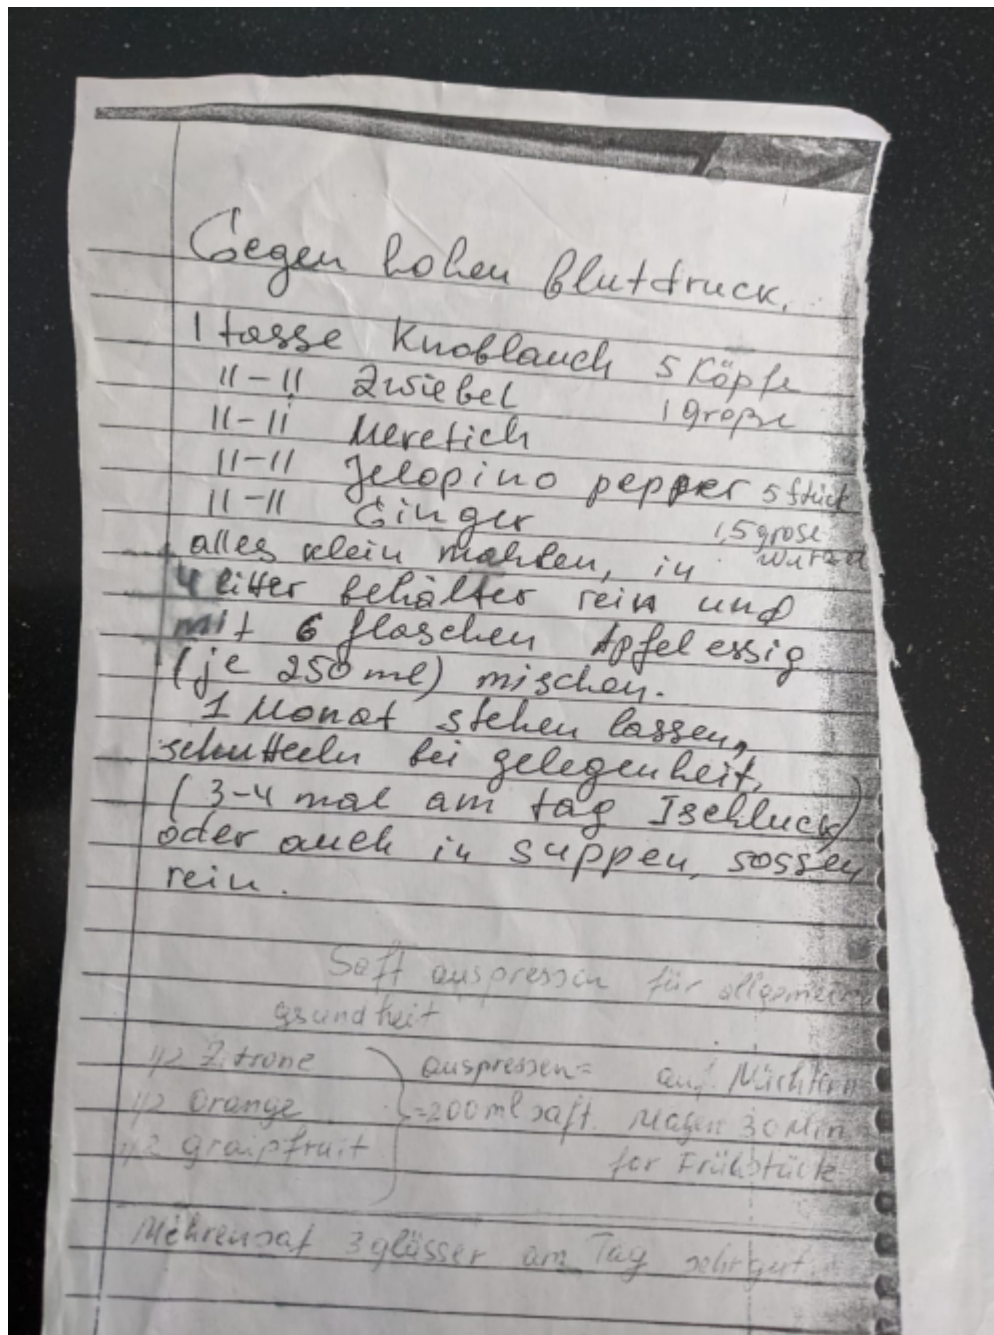 Gegen hohen Blutdruck.
1 tasse Knoblauch 5 Köpfe
11-11 Zwiebel 1 große
11-11 Meretich
11-11 Jelopino pepper 5 stück
11-11 Ginger 1,5 grose
alles klein mahlen, in wurzel
4 litter behälter rein und
mit 6 flaschen Apfelessig
(je 250 ml) mischen.
1 Monat stehen lassen,
schutteln bei gelegenheit,
(3-4 mal am tag 1schluck)
oder auch in suppen, sossen
rein.
Saft auspressen für allgemeine
gsundheit
1/2 Zitrone auspressen= auf Nüchtern
1/2 Orange =200ml saft. Magen 30 Min
1/2 graipfruit for Frühstück
Möhrensaf 3 glässer am Tag sehr gut.